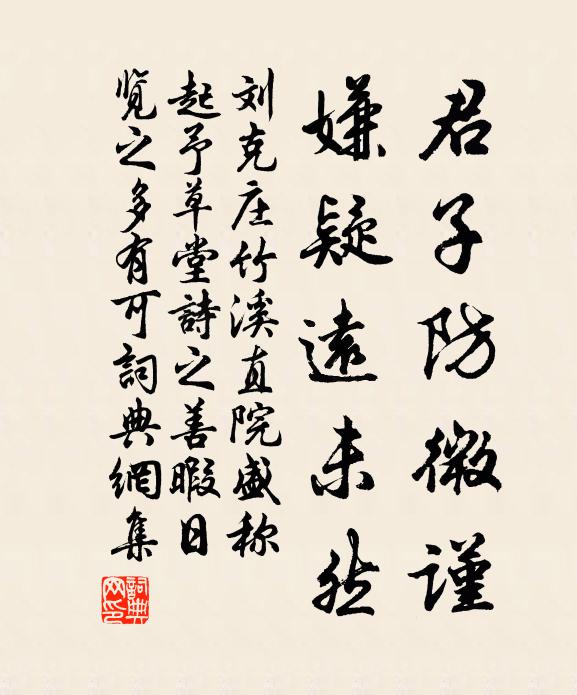 君子防微谨
嫌疑远未然
刘克庄竹溪直院盛称
起予草堂詩之善暇日
览之多有可詞典網集
詞典网印